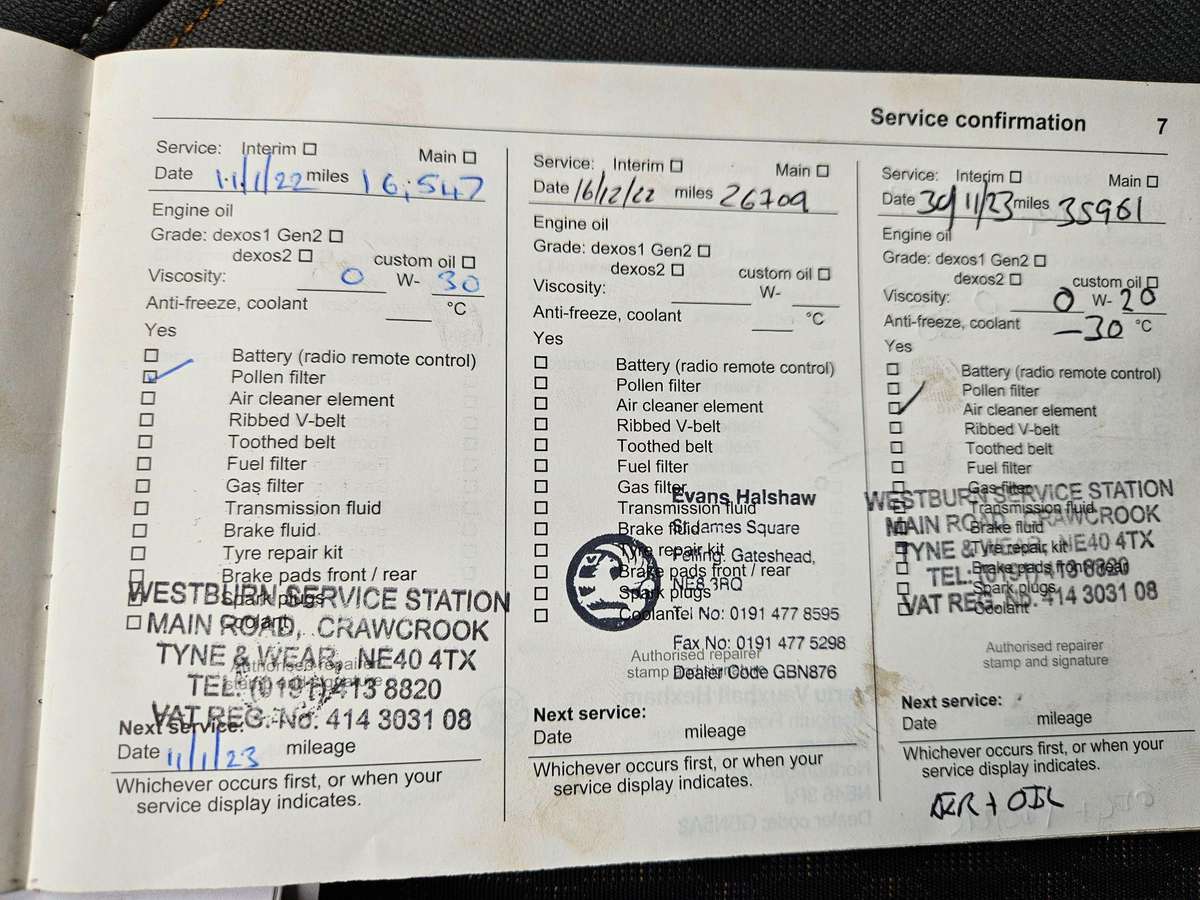 Service confirmation 7
Service: Interim Main
Date 11/1/22 miles 16,547
Engine oil
Grade: dexos1 Gen2
dexos2 custom oil
Viscosity: 0 W- 30
Anti-freeze, coolant °C
Yes
Battery (radio remote control)
Pollen filter
Air cleaner element
Ribbed V-belt
Toothed belt
Fuel filter
Gas filter
Transmission fluid
Brake fluid
Tyre repair kit
Brake pads front / rear
Spark plugs
Coolant
WESTBURN SERVICE STATION
MAIN ROAD, CRAWCROOK
TYNE & WEAR, NE40 4TX
TEL: (0191) 413 8820
VAT REG. No. 414 3031 08
Authorised repairer
stamp and signature
Next service:
Date 11/1/23 mileage
Whichever occurs first, or when your
service display indicates.
Service: Interim Main
Date 16/12/22 miles 26709
Engine oil
Grade: dexos1 Gen2
dexos2 custom oil
Viscosity: W-
Anti-freeze, coolant °C
Yes
Battery (radio remote control)
Pollen filter
Air cleaner element
Ribbed V-belt
Toothed belt
Fuel filter
Gas filter
Transmission fluid
Brake fluid
Tyre repair kit
Brake pads front / rear
Spark plugs
Coolant
Evans Halshaw
St. James Square
Felling, Gateshead,
NE8 3RQ
Tel No: 0191 477 8595
Fax No: 0191 477 5298
Dealer Code GBN876
Authorised repairer
stamp and signature
Next service:
Date mileage
Whichever occurs first, or when your
service display indicates.
Service: Interim Main
Date 30/11/23 miles 35961
Engine oil
Grade: dexos1 Gen2
dexos2 custom oil
Viscosity: 0 W- 20
Anti-freeze, coolant -30 °C
Yes
Battery (radio remote control)
Pollen filter
Air cleaner element
Ribbed V-belt
Toothed belt
Fuel filter
Gas filter
Transmission fluid
Brake fluid
Tyre repair kit
Brake pads front / rear
Spark plugs
Coolant
WESTBURN SERVICE STATION
MAIN ROAD, CRAWCROOK
TYNE & WEAR, NE40 4TX
TEL: (0191) 413 8820
VAT REG. No. 414 3031 08
Authorised repairer
stamp and signature
Next service:
Date mileage
Whichever occurs first, or when your
service display indicates.
AIR + OIL